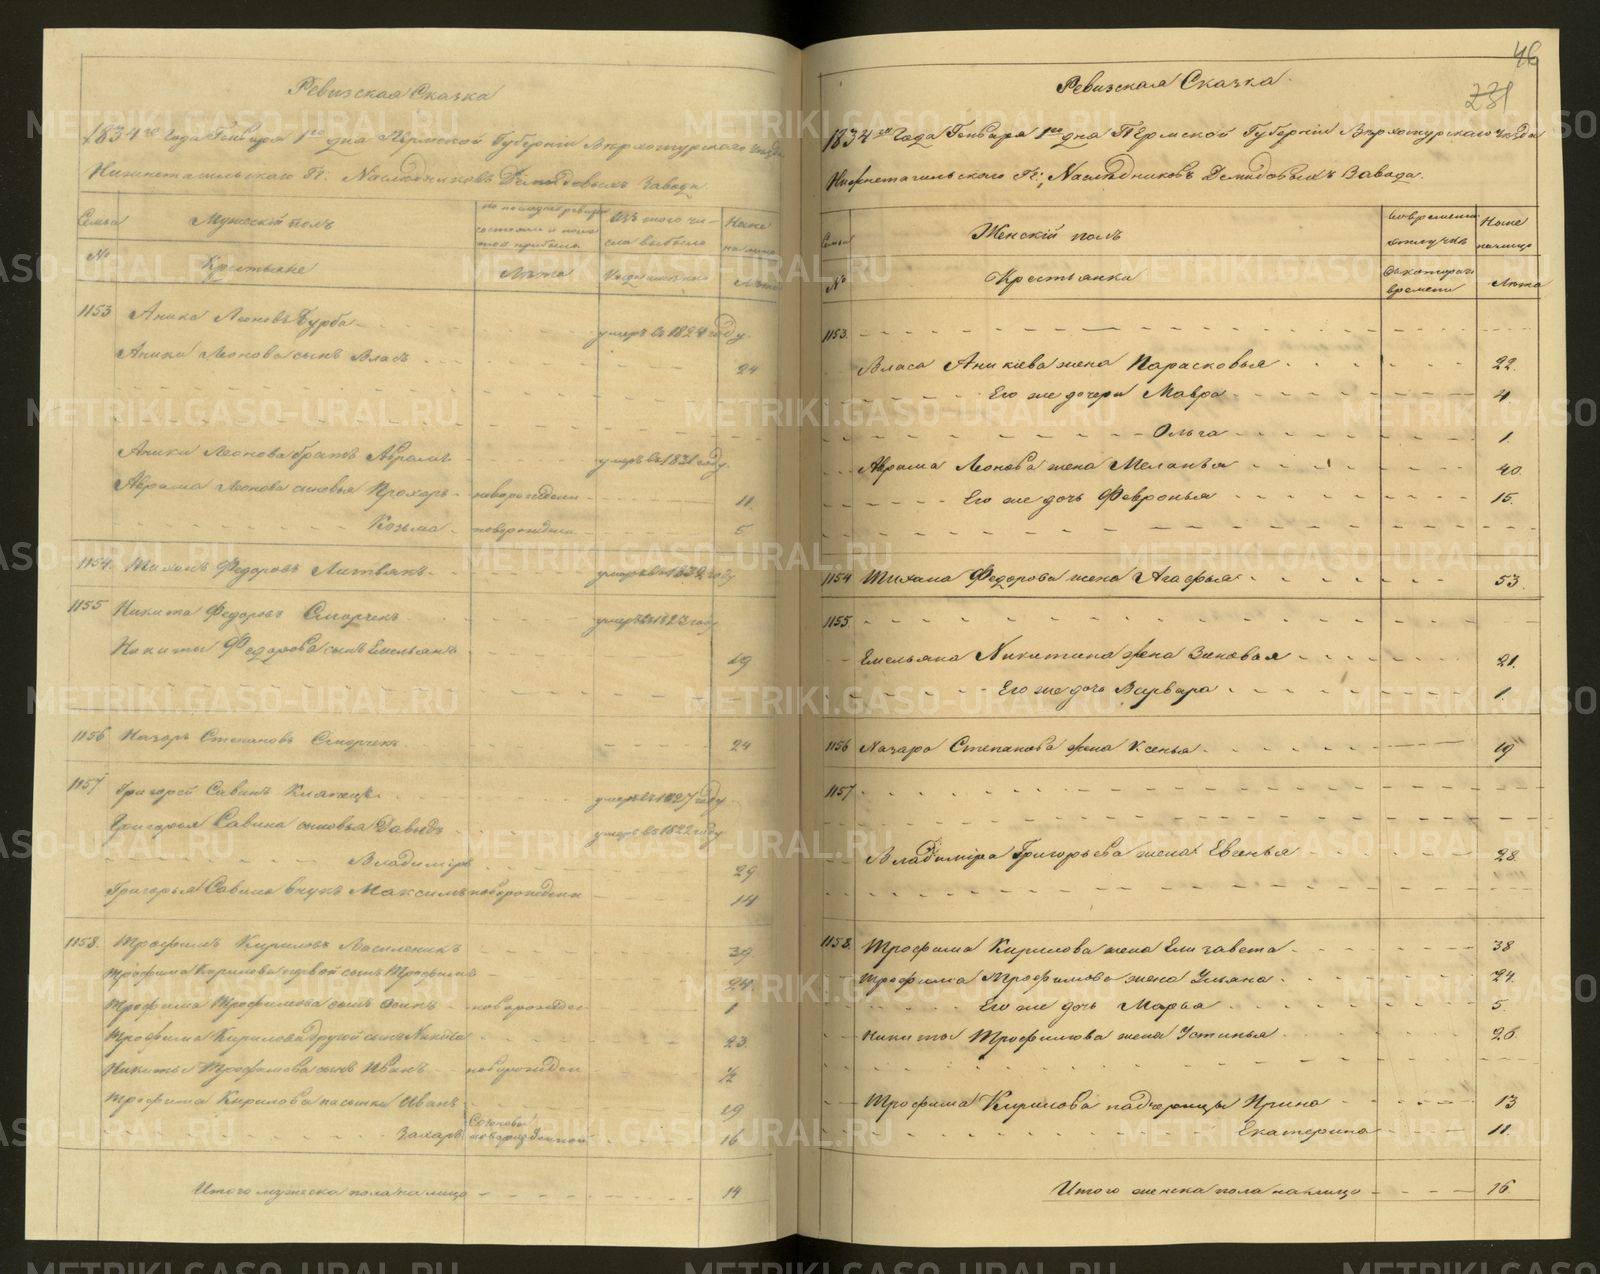 Ревизская Сказка
1834го Года Генваря 1го дня Пермской Губернiи Верхотурского уезда
Нижнетагильского Гг. Наследниковъ Демидовыхъ Завода.
Семьи
Мужескiй полъ
Изъ того числа выбыло
Ныне на лицо
№
Крестьяне
Лета
Когда именно
Лета
1153 Аника Леоновъ умеръ въ 1824 году
Аники Леонова сынъ Власъ 24
Аники Леонова братъ Абрамъ умеръ въ 1831 году
Абрама Леонова сыновья Прохоръ новорожденъ 11.
Козьма новорожденъ 5
1154. Федоровъ Литвякъ умеръ въ году
1155 Никита Федоровъ Сморчекъ умеръ въ 1823 году
Никиты Федорова сынъ Емельянъ 19
1156 Назаръ Степановъ Сморчекъ 24
1157 Григорей Савинъ умеръ въ 1827 году
Григорья Савина сыновья Давыдъ умеръ въ 1822 году
Владимiръ 29
Григорья Савина внукъ Максимъ новорожденъ 14
1158. Трофимъ Кириловъ 39
Трофима Кирилова первой сынъ Трофимъ 24.
Трофима Трофимова сынъ Осипъ новорожден 1
Трофима Кирилова другой сынъ Никита 23.
Никиты Трофимова сынъ Иванъ новорожден 1/2
Трофима Кирилова пасынки Иванъ 19
Захаръ 16
Итого мужеска пола на лицо 14
46
231
Ревизская Сказка.
1834го Года Генваря 1го дня Пермской Губернiи Верхотурского уезда
Нижнетагильского Гг. Наследниковъ Демидовыхъ Завода.
Семьи
Женскiй полъ
Во временной отлучке
Ныне налицо
№
Крестьянки
Съ котораго времени
Лета
1153.
Власа Аникiева жена Парасковья 22.
Его же дочери Мавра 4.
Ольга 1.
Абрама Леонова жена Меланья 40.
Его же дочь Февронья 15.
1154 Федорова жена Агафья 53.
1155.
Емельяна Никитина жена Зиновья 21.
Его же дочь Варвара 1.
1156 Назара Степанова жена Ксенья 19
1157
Владимiра Григорьева жена Евгенья 28.
1158. Трофима Кирилова жена Елизавета 38
Трофима Трофимова жена Ульяна 24.
Его же дочь Марья 5.
Никиты Трофимова жена Устинья 26.
Трофима Кирилова падчерицы Ирина 13
Екатерина 11.
Итого женска пола налицо 16.
METRIKI.GASO-URAL.RU